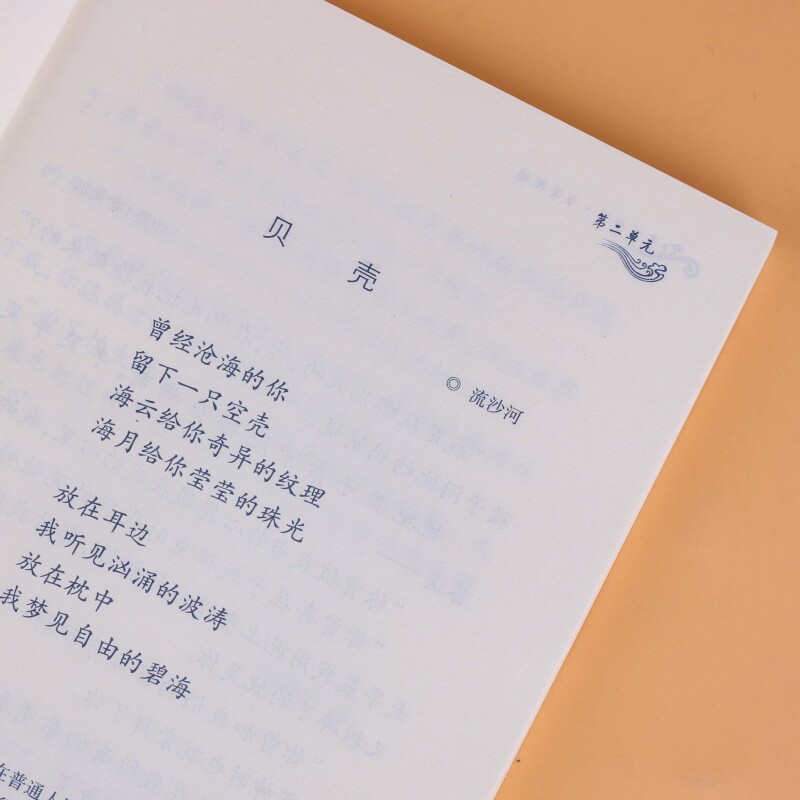 第二单元
贝 壳
◎ 流沙河
曾经沧海的你
留下一只空壳
海云给你奇异的纹理
海月给你莹莹的珠光
放在耳边
我听见汹涌的波涛
放在枕中
我梦见自由的碧海
在普通人